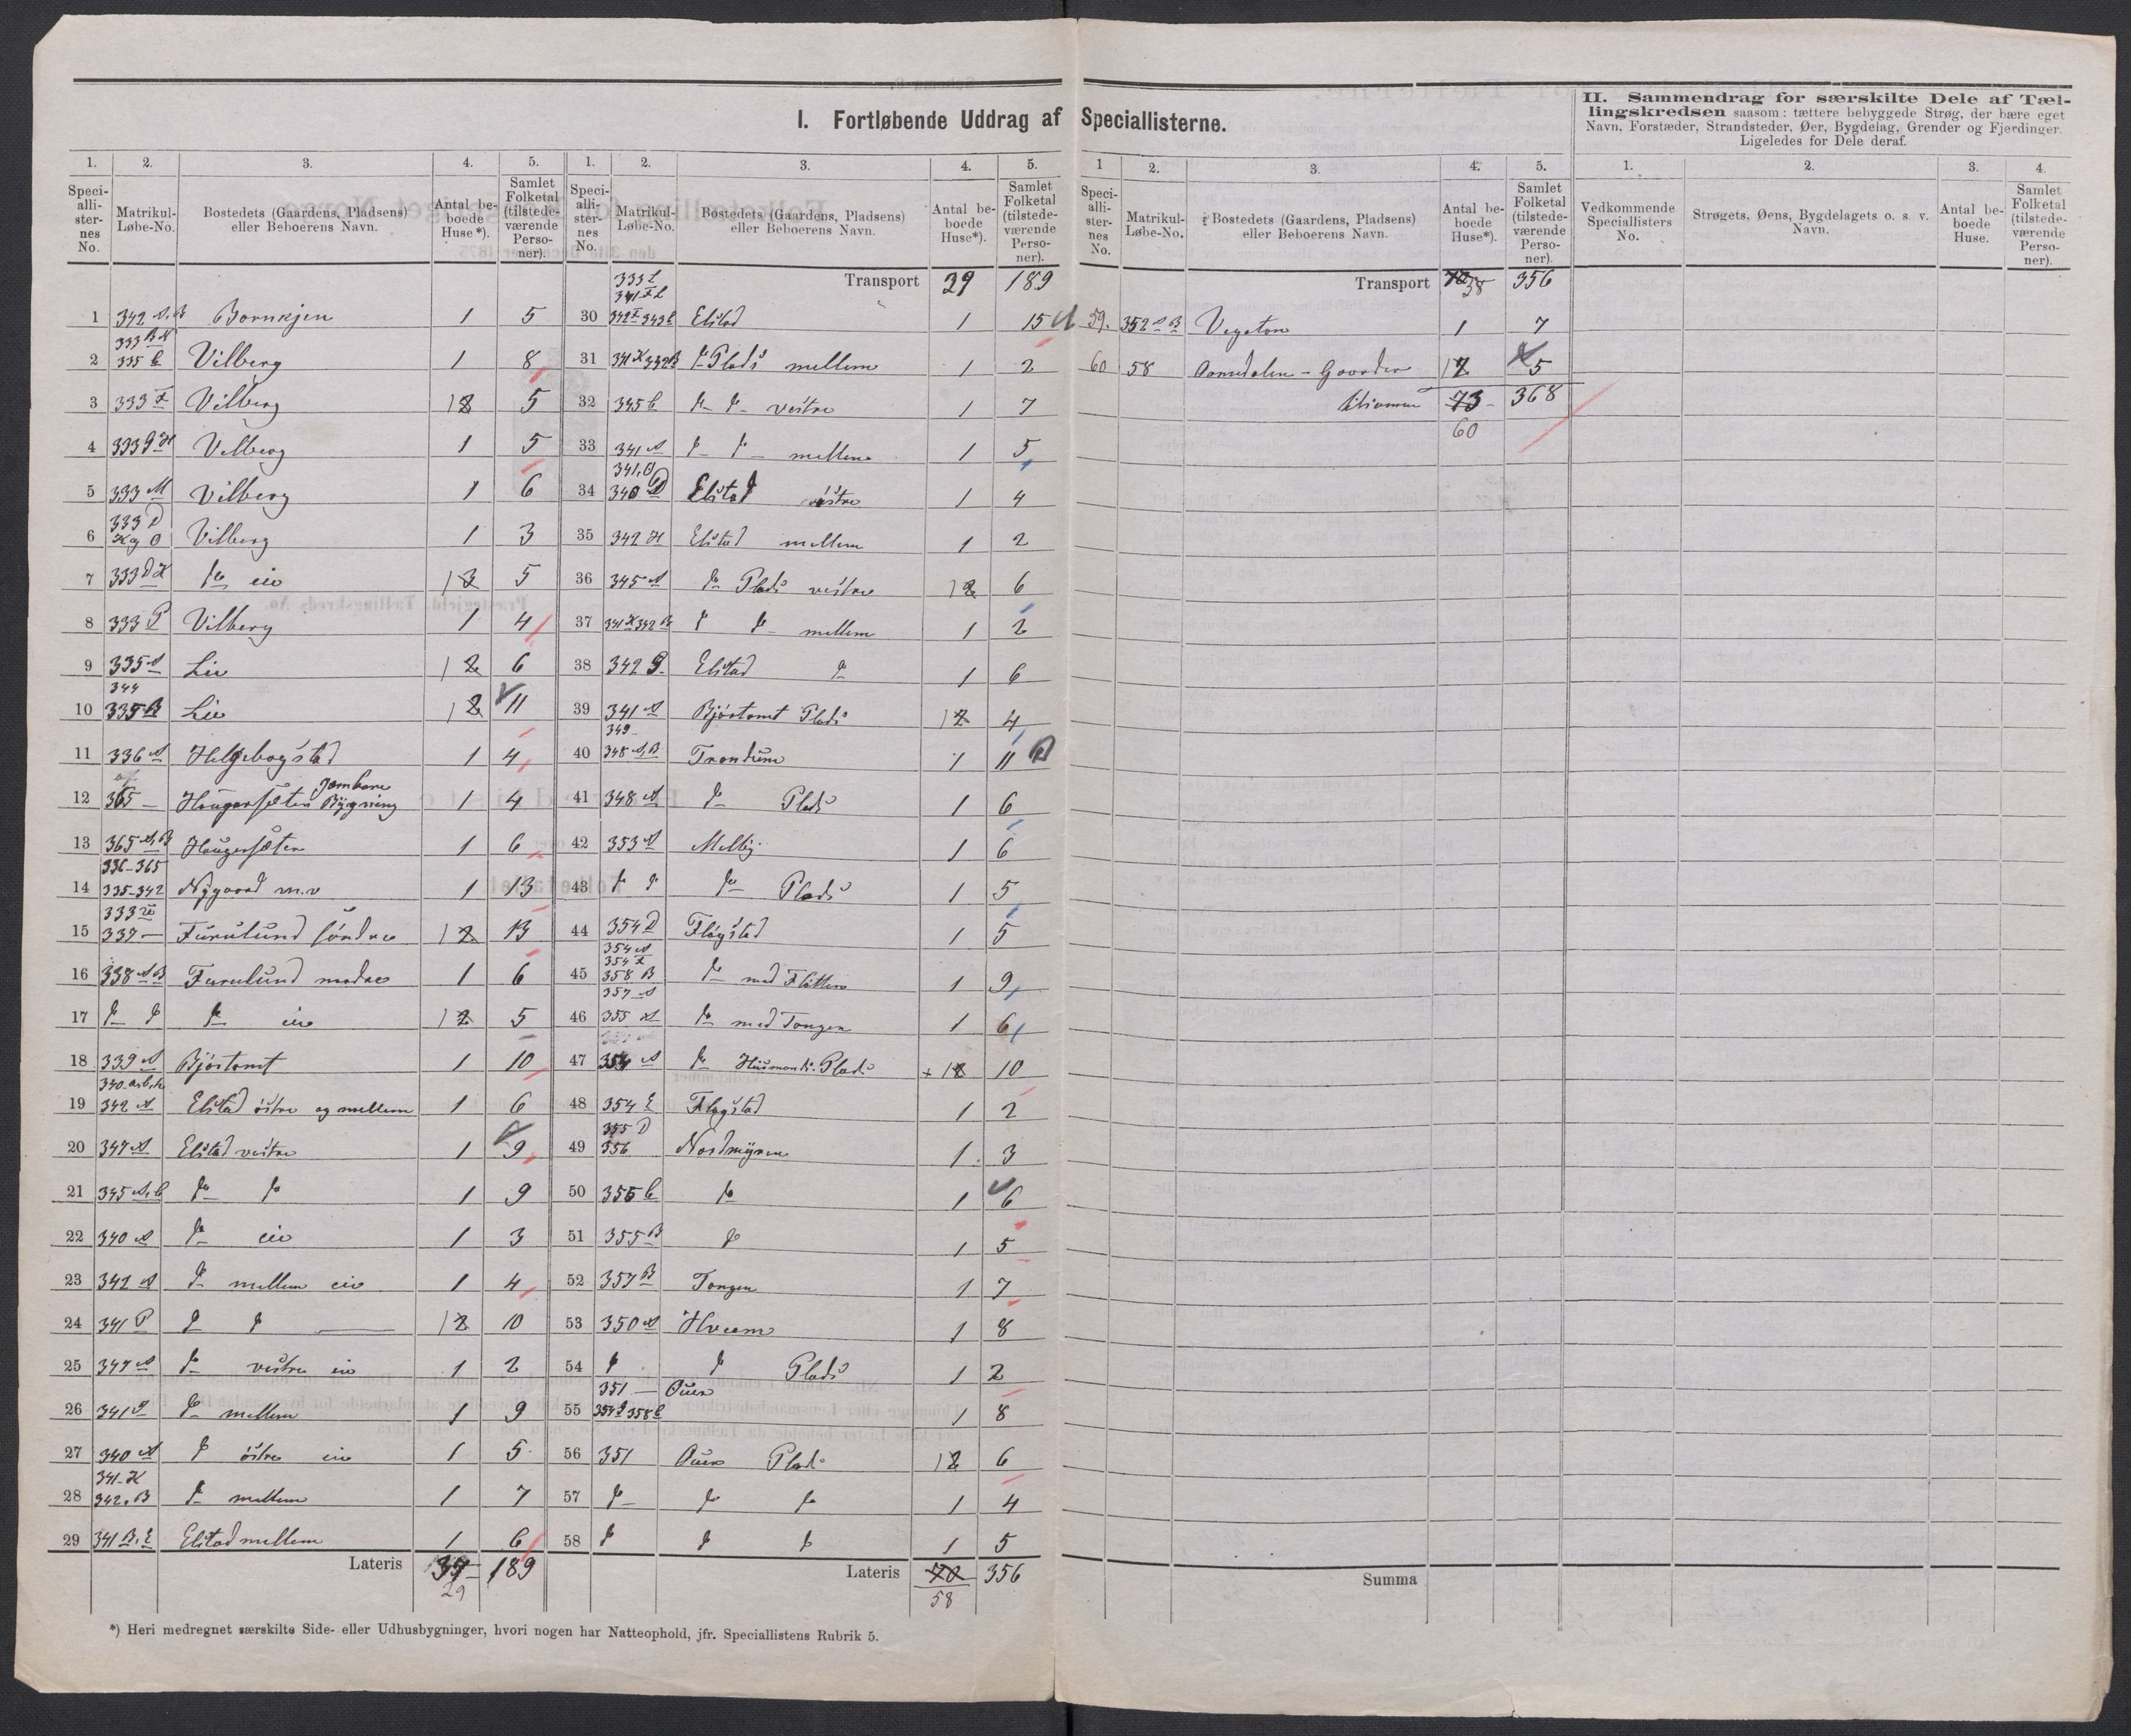 I. Fortløbende Uddrag af Speciallisterne.
II. Sammendrag for særskilte Dele af Tæl-
lingskredsen saasom: tættere bebyggede Strøg, der bære eget
Navn, Forstæder, Strandsteder, Øer, Bygdelag, Grender og Fjerdinger.
Ligeledes for Dele deraf.
1. 2. 3. 4. 5.
Speci-alli-ster-nes No. Matrikul-Løbe-No. Bostedets (Gaardens, Pladsens) eller Beboerens Navn. Antal be-boede Huse*). Samlet Folketal (tilstede-værende Perso-ner).
1 342 A.B Bornkjen 1 5
2 333 B N 335 C Vilberg 1 8
3 333 F Vilberg 1 2 5
4 333 G H Vilberg 1 5
5 333 M Vilberg 1 6
6 333 Vilberg 1 3
7 333 eie 1 5
8 333 P Vilberg 1 4
9 335 A Lie 1 2 6
10 344 335 B Lie 1 2 11
11 336 A Helgebostad 1 4
12 365 Haugersæter Jernbane Bygning 1 4
13 365 A,B Haugersæter 1 6
14 336-365 335-342 Nygaard m.v 1 13
15 333 337 Furulund søndre 1 2 13
16 338 A B Furulund nordre 1 6
17 do do do eie 1 2 5
18 339 A Bjørtomt 1 10
19 340 342 A Elstad østre og mellem 1 6
20 347 A Elstad vestre 1 9
21 345 A,C do do 1 9
22 340 A do eie 1 3
23 342 A do mellem eie 1 4
24 341 P do do 1 2 10
25 347 A do vestre eie 1 2
26 341 do mellem 1 9
27 340 A do østre eie 1 5
28 341 K 342 B do mellem 1 7
29 341 B.E Elstad mellem 1 6
Lateris 37 29 189
1. 2. 3. 4. 5.
Speci-alli-ster-nes No. Matrikul-Løbe-No. Bostedets (Gaardens, Pladsens) eller Beboerens Navn. Antal be-boede Huse*). Samlet Folketal (tilstede-værende Perso-ner).
Transport 29 189
30 333 L 341 F L 342 F 343 Elstad 1 15
31 341 K 342 B do Plads mellem 1 2
32 345 C do do vestre 1 7
33 341 A do do mellem 1 5
34 341, 340 D Elstad østre 1 4
35 342 H Elstad mellem 1 2
36 345 A do Plads vestre 1 2 6
37 341 K 342 B do do mellem 1 2
38 342 G Elstad do 1 6
39 341 A Bjørtomt Plads 1 2 4
40 349 348 A,B Trondum 1 11
41 348 A do Plads 1 6
42 353 A Melby 1 6
43 do do do Plads 1 5
44 354 D Fløgstad 1 5
45 354 A 354 F 358 B do med Flatten 1 9
46 357 A 355 A do med Tangen 1 6
47 354 A do Husmands Plads + 1 2 10
48 354 E Fløgstad 1 2
49 355 D 356 Nordmyren 1 3
50 355 C do 1 6
51 355 B do 1 5
52 357 B Tangen 1 7
53 350 A Hvam 1 8
54 do do Plads 1 2
55 351 358 C Ouer 1 8
56 351 Ouer Plads 1 2 6
57 do do do 1 4
58 do do do 1 5
Lateris 70 58 356
1 2. 3. 4. 5.
Speci-alli-ster-nes No. Matrikul-Løbe-No. Bostedets (Gaardens, Pladsens) eller Beboerens Navn. Antal be-boede Huse*). Samlet Folketal (tilstede-værende Perso-ner).
Transport 70 58 356
59. 352 A B Vegston 1 7
60 58 Aamodalen - Gaarder 1 2 5
73 368
60
Summa
1. 2. 3. 4.
Vedkommende Speciallisters No. Strøgets, Øens, Bygdelagets o. s. v. Navn. Antal be-boede Huse. Samlet Folketal (tilstede-værende Perso-ner).
*) Heri medregnet særskilte Side- eller Udhusbygninger, hvori nogen har Natteophold, jfr. Speciallistens Rubrik 5.